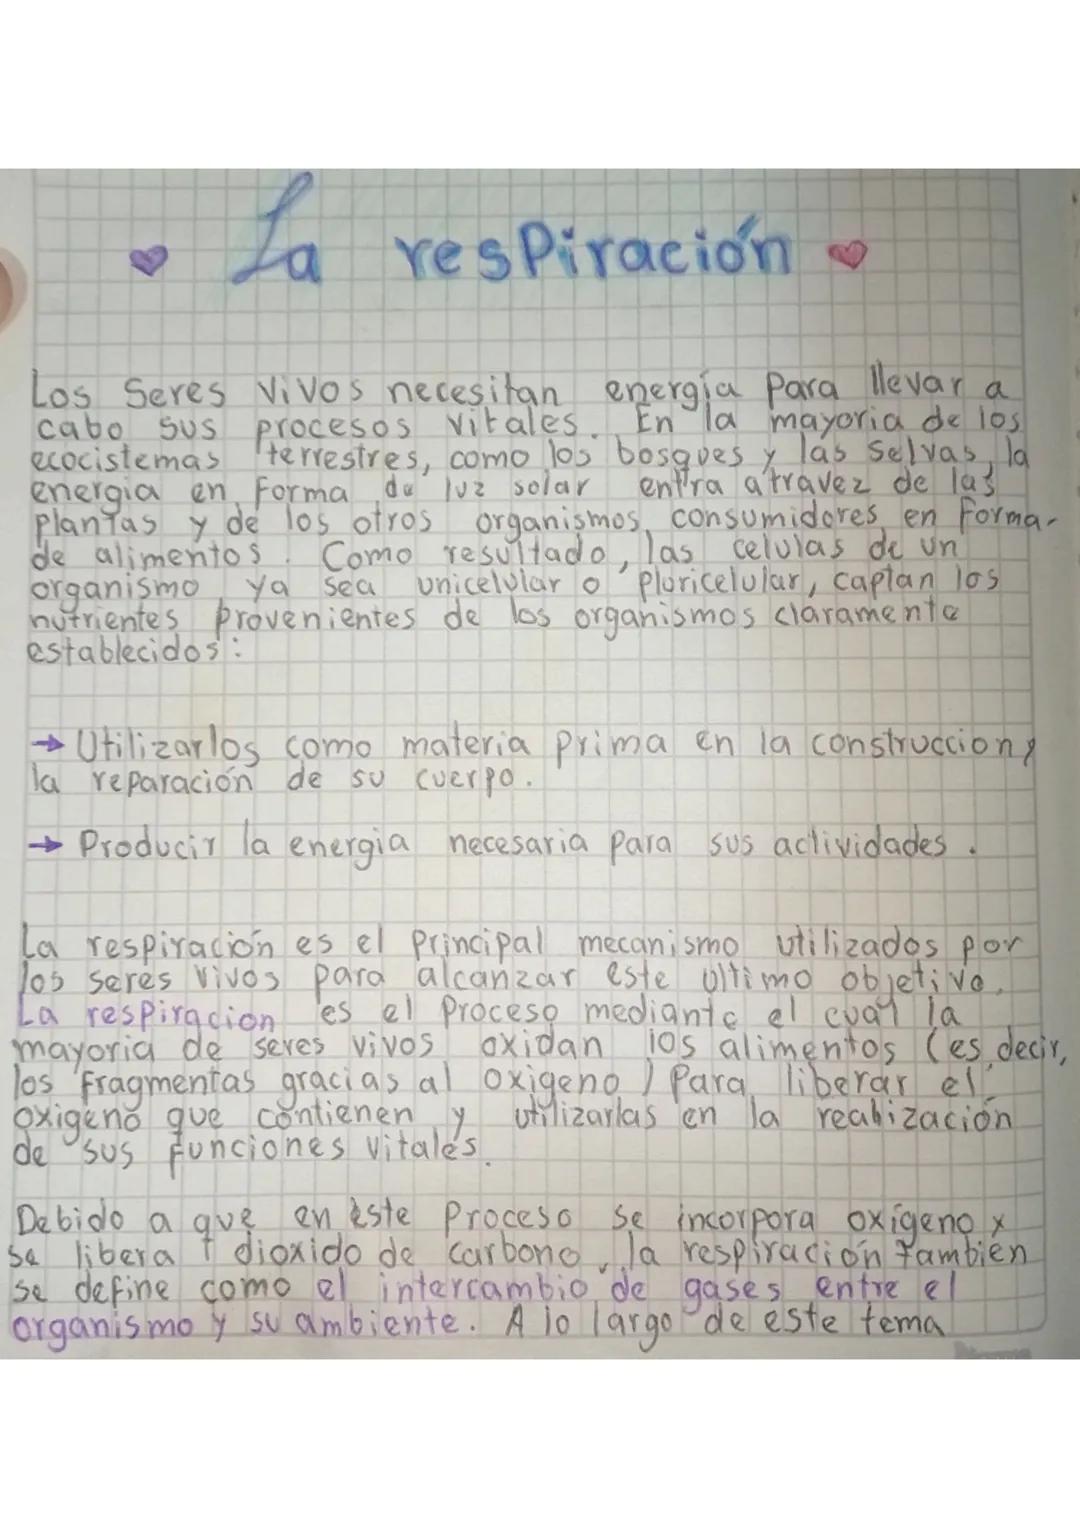 La respiración
Los Seres Vivos necesitan energía para llevar a
cabo sus procesos vitales. En la mayoria de los
ecocistemas terrestres, como los bosques y las Selvas, la
energia en forma de luz solar entra atravez de las
plantas y de los otros organismos, consumidores en forma
de alimentos. Como resultado, las celulas de un
organismo, ya sea unicelular o pluricelular, captan los
nutrientes provenientes de los organismos claramente
establecidos:
→ Utilizarlos como materia prima en la construccion y
la reparación de su cuerpo.
→ Producir la energia necesaria para sus actividades.
La respiración es el principal mecanismo utilizados por
los seres vivos para alcanzar este ultimo objetivo.
La respiracion es el proceso mediante el cual la
mayoria de seres vivos oxidan los alimentos (es decir,
los fragmentas gracias al oxigeno) para liberar el
oxigeno que contienen y utilizarlas en la realización
de sus funciones vitales.
Debido a que en este proceso se incorpora oxígeno y
se libera dioxido de carbono, la respiración tambien
se define como el intercambio de gases entre el
organismo y su ambiente. A lo largo de este tema